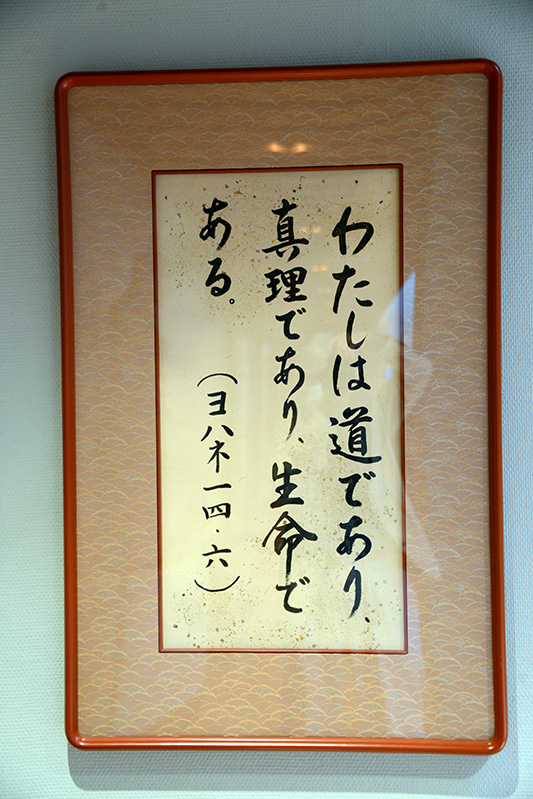 わたしは道であり、
真理であり、生命で
ある。
(ヨハネ一四・六)